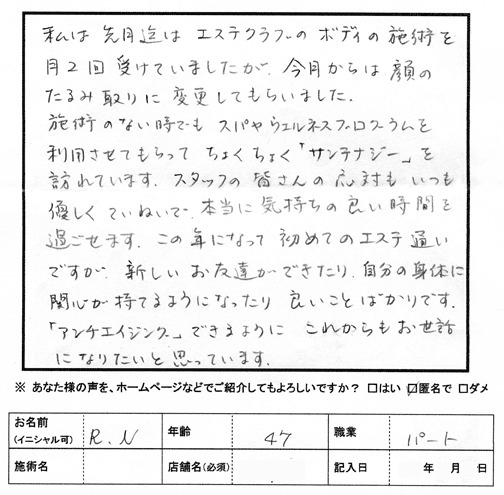 私は 先月迄は エステクラブの ボディの 施術を
月2回 受けていましたが、今月からは 顔の
たるみ取りに 変更してもらいました。
施術のない時でも スパやウェルネスプログラムを
利用させてもらって ちょくちょく「サンテナジー」を
訪れています。スタッフの 皆さんの 応対も いつも
優しく ていねいで、本当に 気持ちの 良い 時間を
過ごせます。この年になって 初めての エステ 通い
ですが、新しい お友達ができたり、自分の 身体に
関心が 持てるようになったり 良いことばかりです。
「アンチエイジング」できるように これからも お世話
になりたいと 思っています。
※ あなた様の声を、ホームページなどでご紹介してもよろしいですか? □はい ☑匿名で □ダメ
お名前(イニシャル可) R.N 年齢 47 職業 パート
施術名 店舗名(必須) 記入日 年 月 日